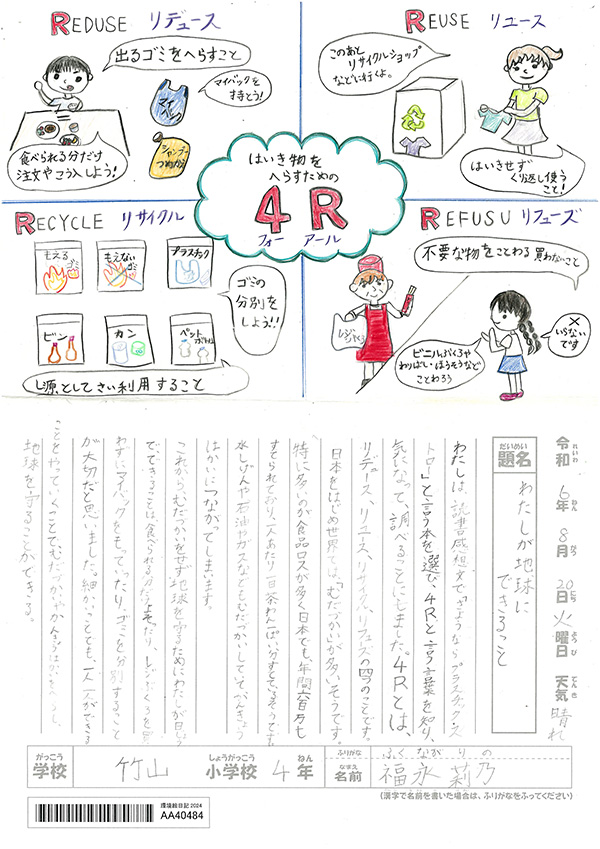 REDUSE リデュース
出るゴミをへらすこと
マイバックを
す持とう!
マイ
バック
シャンプー
つめかえ
食べられる分だけ
注文やこう入しよう!
REUSE リユース
このあと
リサイクルショップ
などに行くよ。
はいきせず
くり返し使う
こと!
はいき物を
へらすための
4R
フォー アール
RECYCLE リサイクル
もえる
ゴミ
もえない
ゴミ
プラスチック
ビン
カン
ペット
ボトル
ゴミの
分別を
しよう!!
し源としてさい利用すること
REFUSU リフューズ
不要な物をことわる 買わないこと
レジ
ぶくろ
ビニルぶくろや
わりばし・ほうそうなど
ことわろう
×
いらない
です
令和 6年 8月 20日 火曜日 天気 晴れ
れいわ ねん がつ にち ようび てんき
だいめい
題名
わたしが地球に
できること
わたしは、読書感想文で「さようならプラスチック・ス
トロー」と言う本を選び、4Rと言う言葉を知り、
気になって、調べることにしました。4Rとは、
リデュース、リユース、リサイクル、リフューズの四つのことです。
日本をはじめ世界では、「むだづかい」が多いそうです。
特に多いのが食品ロスが多く日本でも、年間六百万も
すてられており、一人あたり一日茶わん一ぱい分すてているそうです。
水しげんや石油やガスなどもむだづかいしていて、かんきょう
はかいに「つながってしまいます。
これからむだづかいをせず地球を守るためにわたしが日じょう
でできることは食べられる分だけよそったり、レジぶくろを買
わずにマイバッグをもっていったり、ゴミを分別すること
が大切だと思いました。細かいことでも、一人一人ができる
ことをやっていくことでむだづかいやかんきょうはかいをへらし、
地球を守ることができる。
がっこう
学校
竹山
しょうがっこう
小学校
4年
ねん
ふりがな
ふくなが りの
なまえ
名前
福永 莉乃
(漢字で名前を書いた場合は、ふりがなをふってください)
環境絵日記2024
AA40484